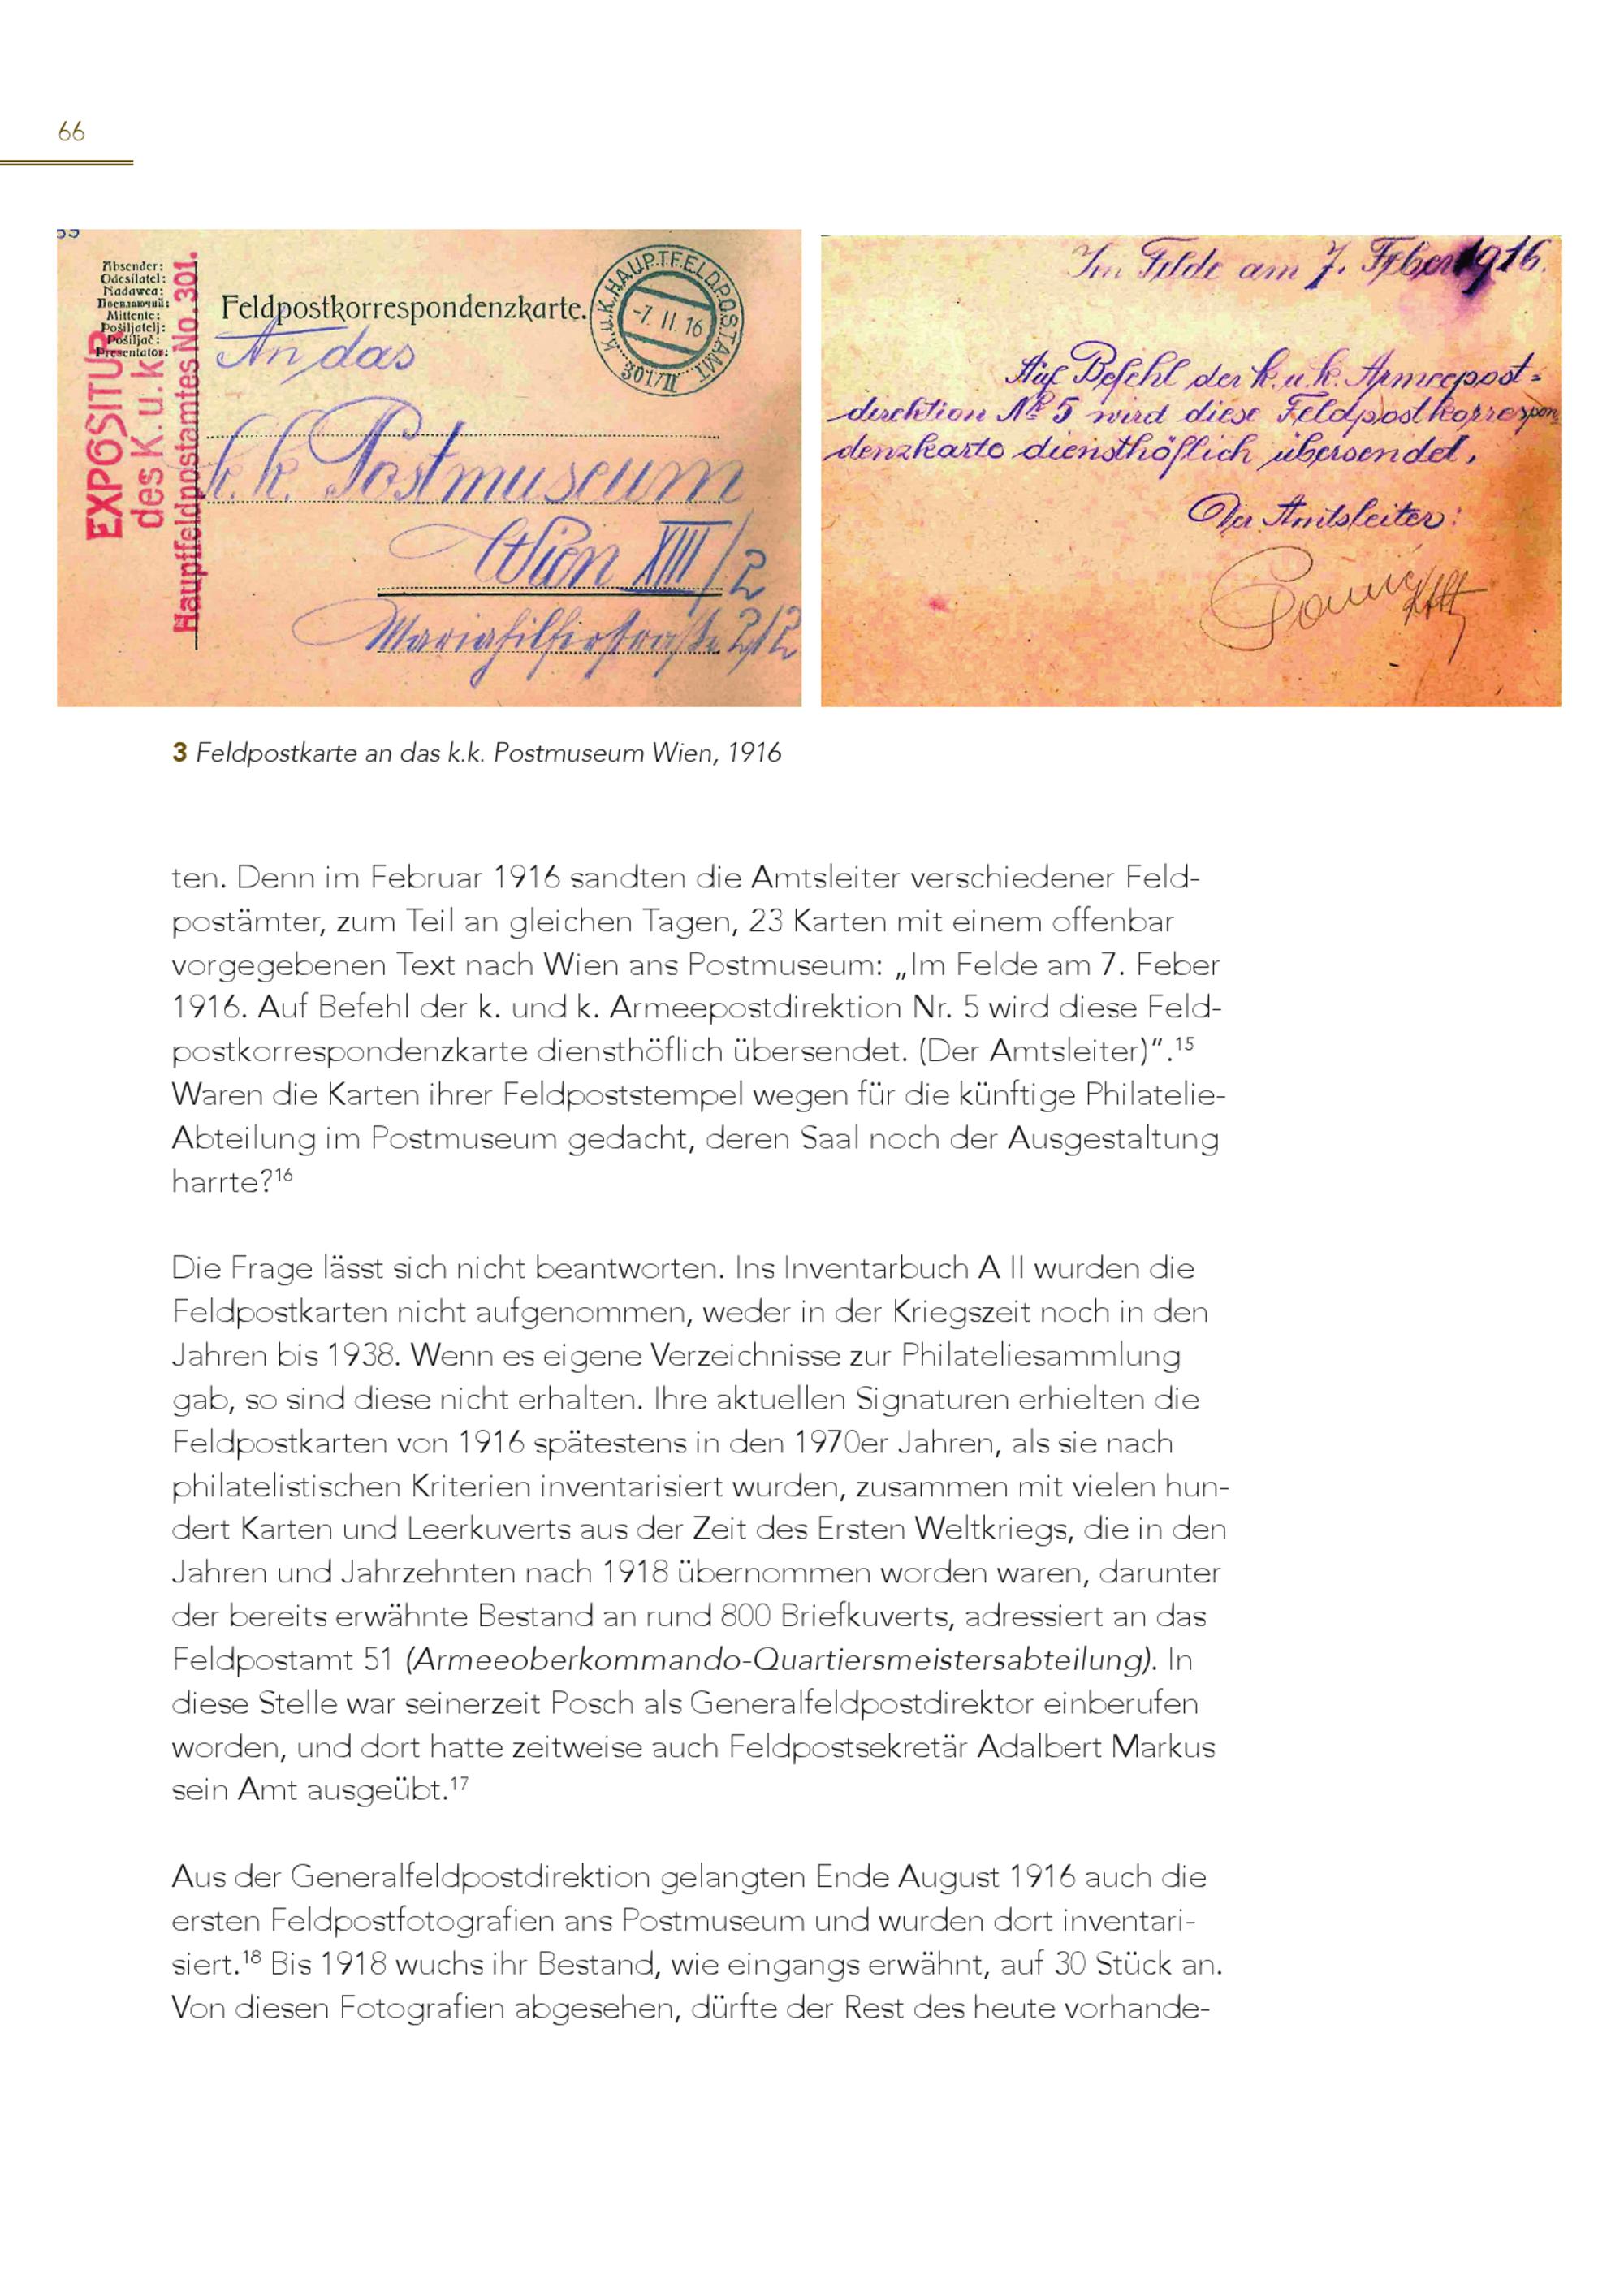 66
Absender:
Odesílatel:
Nadawca:
Mittente:
Pošiljatelj:
Pošiljač:
Presentator:
EXPOSITUR
des K. u. k.
Hauptfeldpostamtes No. 301.
Feldpostkorrespondenzkarte.
K.u.K. HAUPTFELDPOSTAMT
-7. II. 16
301/II
An das
k. k. Postmuseum
Wien XIII/2
Mariahilferstraße 212
Im Felde am 7. Feber 1916.
Auf Befehl der k. u. k. Armeepost-
direktion No 5 wird diese Feldpostkorrespon
denzkarte diensthöflich übersendet.
Der Amtsleiter:
3 Feldpostkarte an das k.k. Postmuseum Wien, 1916
ten. Denn im Februar 1916 sandten die Amtsleiter verschiedener Feld-
postämter, zum Teil an gleichen Tagen, 23 Karten mit einem offenbar
vorgegebenen Text nach Wien ans Postmuseum: „Im Felde am 7. Feber
1916. Auf Befehl der k. und k. Armeepostdirektion Nr. 5 wird diese Feld-
postkorrespondenzkarte diensthöflich übersendet. (Der Amtsleiter)”.15
Waren die Karten ihrer Feldpoststempel wegen für die künftige Philatelie-
Abteilung im Postmuseum gedacht, deren Saal noch der Ausgestaltung
harrte?16
Die Frage lässt sich nicht beantworten. Ins Inventarbuch A II wurden die
Feldpostkarten nicht aufgenommen, weder in der Kriegszeit noch in den
Jahren bis 1938. Wenn es eigene Verzeichnisse zur Philateliesammlung
gab, so sind diese nicht erhalten. Ihre aktuellen Signaturen erhielten die
Feldpostkarten von 1916 spätestens in den 1970er Jahren, als sie nach
philatelistischen Kriterien inventarisiert wurden, zusammen mit vielen hun-
dert Karten und Leerkuverts aus der Zeit des Ersten Weltkriegs, die in den
Jahren und Jahrzehnten nach 1918 übernommen worden waren, darunter
der bereits erwähnte Bestand an rund 800 Briefkuverts, adressiert an das
Feldpostamt 51 (Armeeoberkommando-Quartiersmeistersabteilung). In
diese Stelle war seinerzeit Posch als Generalfeldpostdirektor einberufen
worden, und dort hatte zeitweise auch Feldpostsekretär Adalbert Markus
sein Amt ausgeübt.17
Aus der Generalfeldpostdirektion gelangten Ende August 1916 auch die
ersten Feldpostfotografien ans Postmuseum und wurden dort inventari-
siert.18 Bis 1918 wuchs ihr Bestand, wie eingangs erwähnt, auf 30 Stück an.
Von diesen Fotografien abgesehen, dürfte der Rest des heute vorhande-